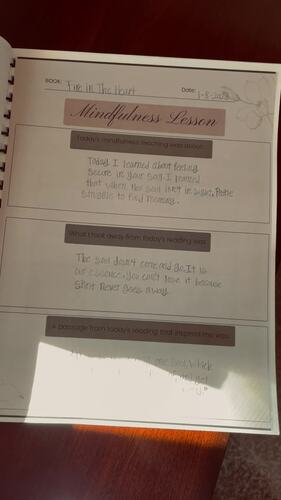 BOOK: Fire in The Heart Date: 1-8-2023
Mindfulness Lesson
Today's mindfulness teaching was about:
Today I learned about feeling
secure in your soul. I learned
that when the soul isn't in sight, People
struggle to find meaning.
What I took away from today's reading was:
The soul doesn't come and go. It is
our essence. You can't lose it because
spirit never goes away.
A passage from today's reading that inspired me was:
one soul, which